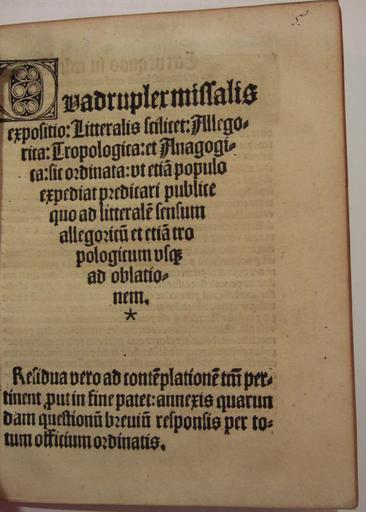 Quadruplex missalis
expositio: Litteralis scilicet: Allego-
rica: Tropologica: et Anagogi-
ca: sic ordinata: vt etiā populo
expediat predicari publice
quo ad litteralē sensum
allegoricū et etiā tro
pologicum vsqꝫ
ad oblatio-
nem.
*
Residua vero ad contēplationē tm̄ per-
tinent ꝓut in fine patet: annexis quarun
dam questionū breuiū responsis per to-
tum officium ordinatis.